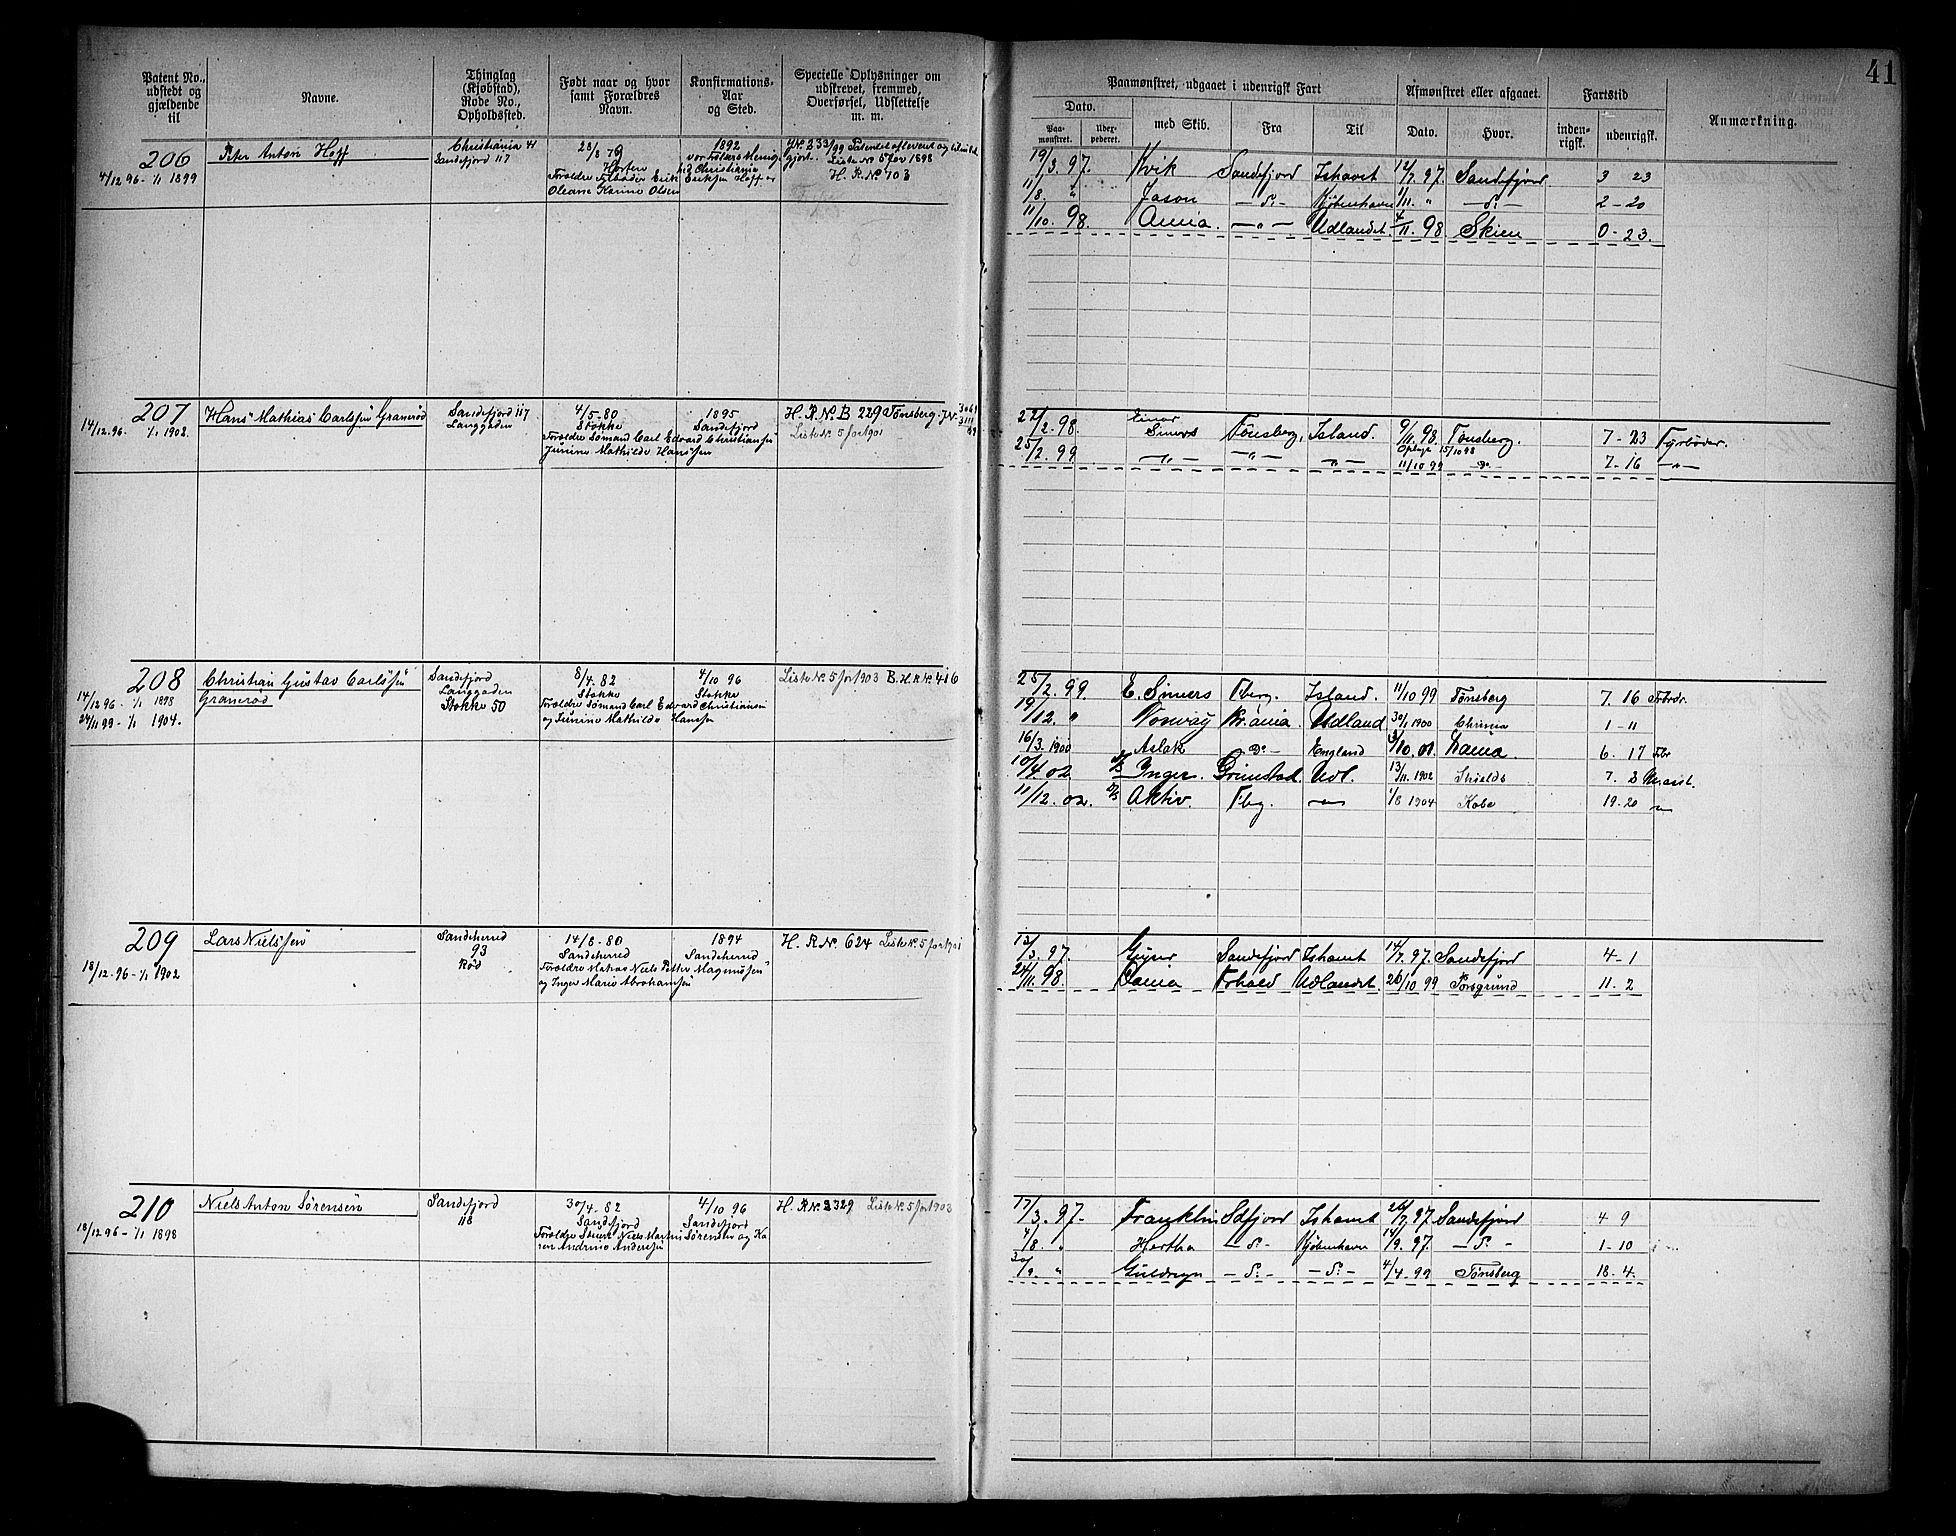 41
Patent No., udstedt og gjældende til
Navne.
Thinglag (Kjøbstad), Rode No., Opholdssted.
Født naar og hvor samt Forældres Navn.
Konfirmations-Aar og Sted.
Specielle Oplysninger om udskrevet, fremmed, Overførsel, Udslettelse m. m.
Paamønstret, udgaaet i udenrigsk Fart
Afmønstret eller afgaaet.
Fartstid
Anmærkning.
Dato.
Paa-mønstret.
med Skib.
Fra
Til
Dato.
Hvor.
inden-rigsk.
udenrigsk.
206
4/12 96 - 1/1 1899
Peter Anton Hoff
Christiania 41
Sandefjord 117
28/8 79
Horten
Forældre Filbøder Erik Eriksen Hoff og
Oleane Karine Olsen
1892
vor Frelsers Menig
hed Christiania
Patentet afleveret og
Liste No 5 for 1898
H. R. No 703
19/3. 97. Kvik Sandefjord Ishavet 12/7. 97. Sandefjord 3 23
11/8. " Jason — S. — Kjøbenhavn 11/11. " — S. — 2 - 20
11/10. 98. Amia. — " — Udlandet. 4/11. 98. Skien 0 - 23.
207
14/12.96. 1/1 1902.
Hans Mathias Carlssen Granerød
Sandefjord 117
Langgaden
4/5 - 80
Stokke
Forældre Sømand Carl Edvard Christiansen
Junine Mathilde Hanssen
1895
Sandefjord
H. R. No B 229 Tønsberg. J.N.
Liste No 5 for 1901
22/2. 98. Einar Simers Tønsberg, Island. 9/11. 98. Tønsberg. 7 - 23 Fyrbøder.
25/2. 99 — " — — " — — " — 15/10 98
11/10 99 Do 7 - 16 — " —
208
14/12 96 - 1/1 1898
24/11 99 - 1/1 1904.
Christian Gustav Carlssen
Granerød
Sandefjord
Langgaden
Stokke 50
8/4. 82
Stokke
Forældre Sømand Carl Edvard Christiansen
og Junine Mathilde Hanssen
4/10 96
Stokke
Liste No 5 for 1903 B. H. R. No 416
25/2. 99 E. Simers Tbrg. Island. 11/10 99 Tønsberg 7. 16 Frbdr.
19/12. " Norway Kr.ania. Udland 30/1 1900 Chrnia 1 - 11
16/3. 1900 Aslak Do - England 3/10. 01. Krania. 6. 17 Fbr
10/4 02 D/S Inger. Grimstad. Udl. 13/11. 1902 Shields 7. 3
11/12. 02. D/S Aktiv. Tbg. — " — 1/8 1904 Kobe 19 - 20 — " —
209
18/12. 96 - 1/1 1902
Lars Nielssen
Sandeherred
93
Rød
14/8 - 80
Sandeherred
Forældre Matros Niels Petter Magnussen
og Inger Marie Abrahamsen
1894
Sandeherred
H. R. No. 624 Liste No. 5 for 1901
13/3. 97. Gujser Sandefjord Ishavet 14/7. 97. Sandefjord 4 - 1
24/11. 98. Cania Frhald Udlandet. 26/10 99 Porsgrund 11. 2
210
18/12 96 - 1/1 1898
Niels Anton Sørensen
Sandefjord
118
30/4. 82
Sandefjord
Forældre Skuem. Niels Martin Sørensen og Ka
ren Andrine Andersen
4/10 96
Sandefjord
H. R. No. 2329 Liste No. 5 for 1903
17/3. 97. Franklin Sdfjord Ishavet 26/7. 97. Sandefjord 4 9
4/8. " Hertha — S. — Kjøbenhavn 14/9. 97. — S. — 1 - 10
30/9. " Guldregn — S. — — S. — 4/4. 99 Tønsberg 18. 4.